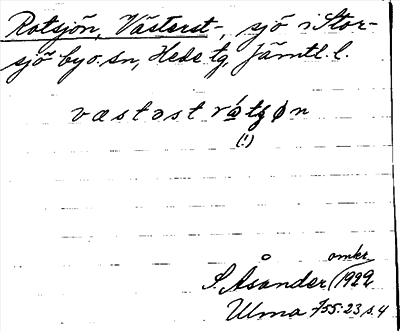 Rotsjön, Västerst-, sjö i Stor-
sjö by o. sn, Hede tg, Jämtl. l.
væstast rátgøn
(!)
S. Åsander, omkr. 1922
Ulma 755:23, s. 4